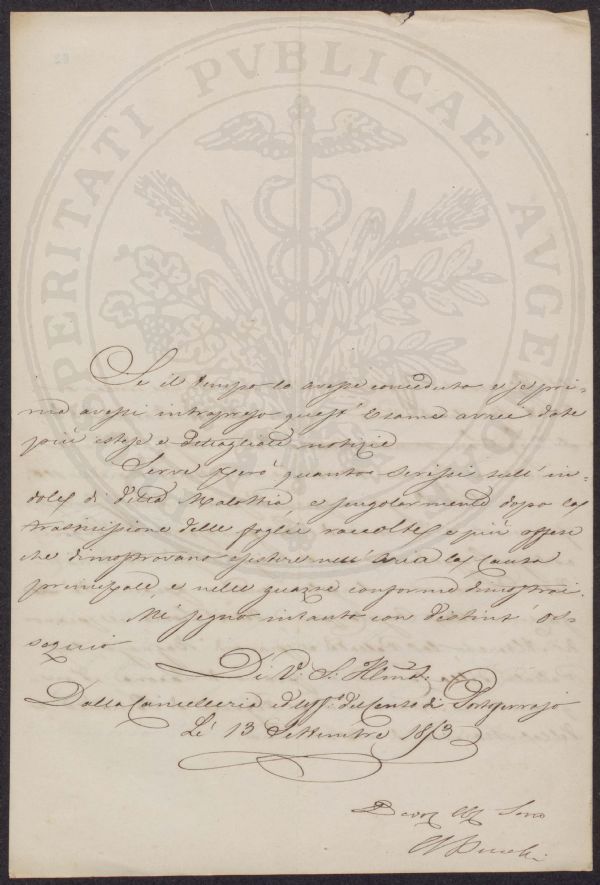 PROSPERITATI PVBLICAE AVGENDAE
Se il tempo lo avesse conceduto e se pri-
ma avessi intrapreso quest' Esame avrei date
più estese e dettagliate notizie
Serve però quanto scrissi sull' in-
dole di detta Malattia, e singolarmente dopo la
trasmissione delle foglie raccolte, e più offese
che dimostravano esistere nell' Aria la Causa
principale, e nelle guazze conforme dimostrai.
Mi segno intanto con distint' Os-
sequio
Di V: S: Illma:
Dalla Cancelleria del Censo di Portoferrajo
Li 13 Settembre 1853
Devot Serv